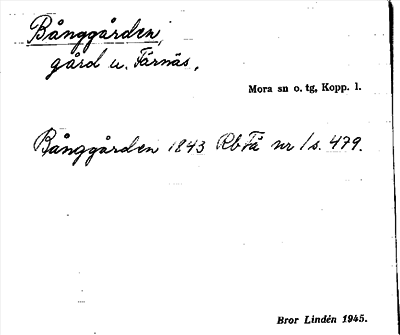 Bånggården,
gård u. Färnäs.
Mora sn o. tg, Kopp. l.
Bånggården 1843 RbFä nr 1 s. 479.
Bror Lindén 1945.